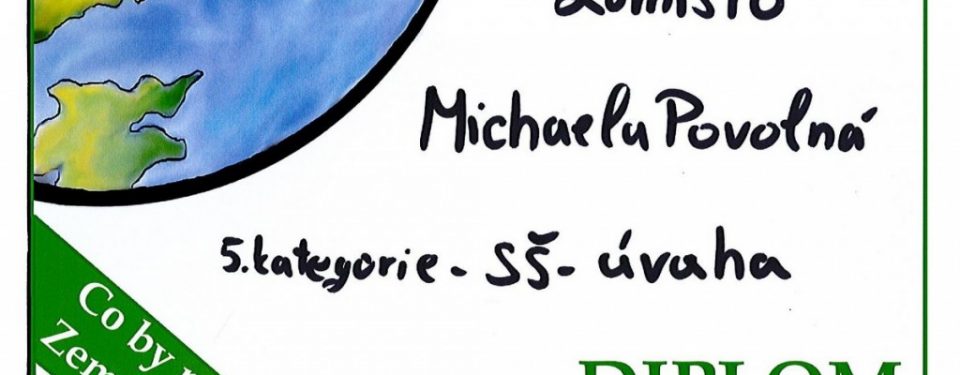 2.místo
Michaela Povolná
5.kategorie - SŠ - úvaha
Co by
DIPLOM